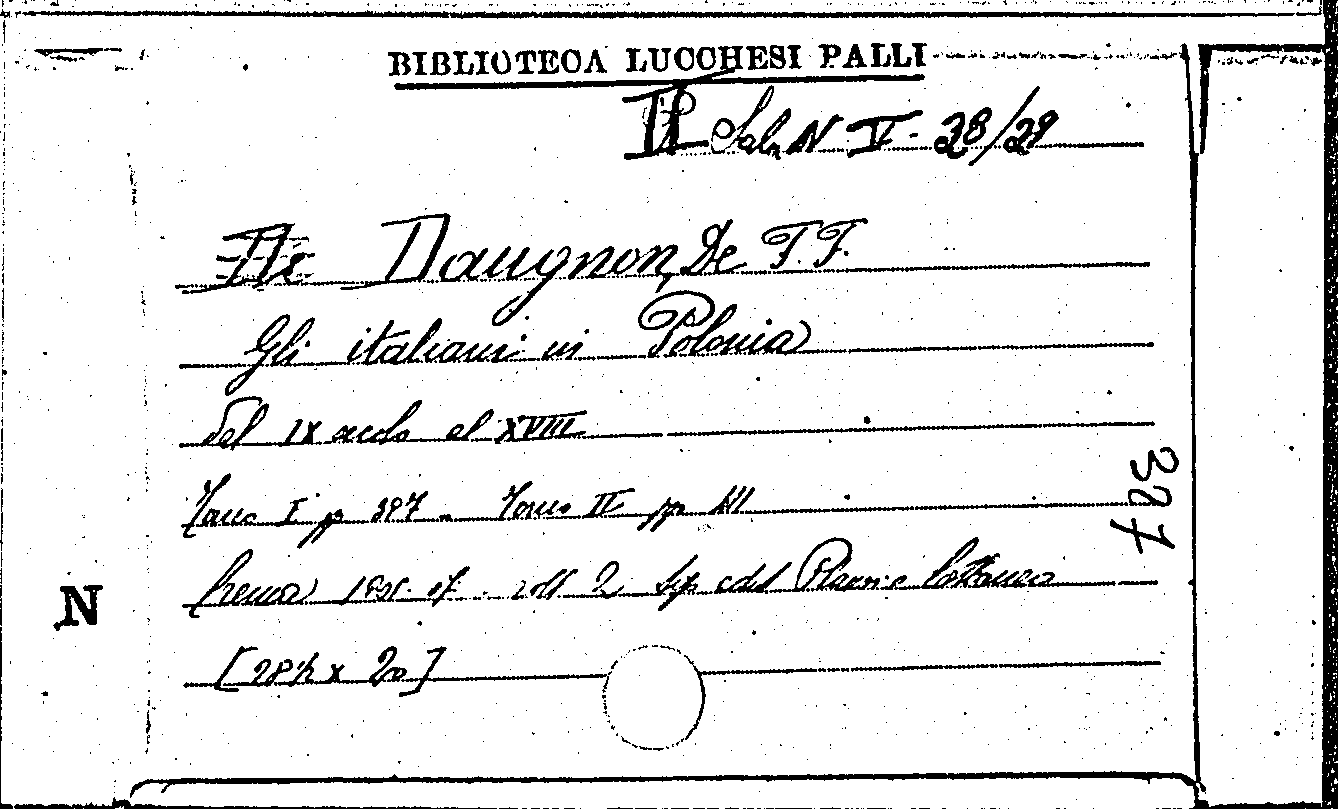 BIBLIOTECA LUCCHESI PALLI
Sala N V - 28/29
Daugnon, De F. F.
Gli italiani in Polonia
dal IX secolo al XVIII
Tomo I pp 327 - Tomo II pp
Crema voll 2 tip edit Plausi e Cattaneo
[28½ x 20]
327
N